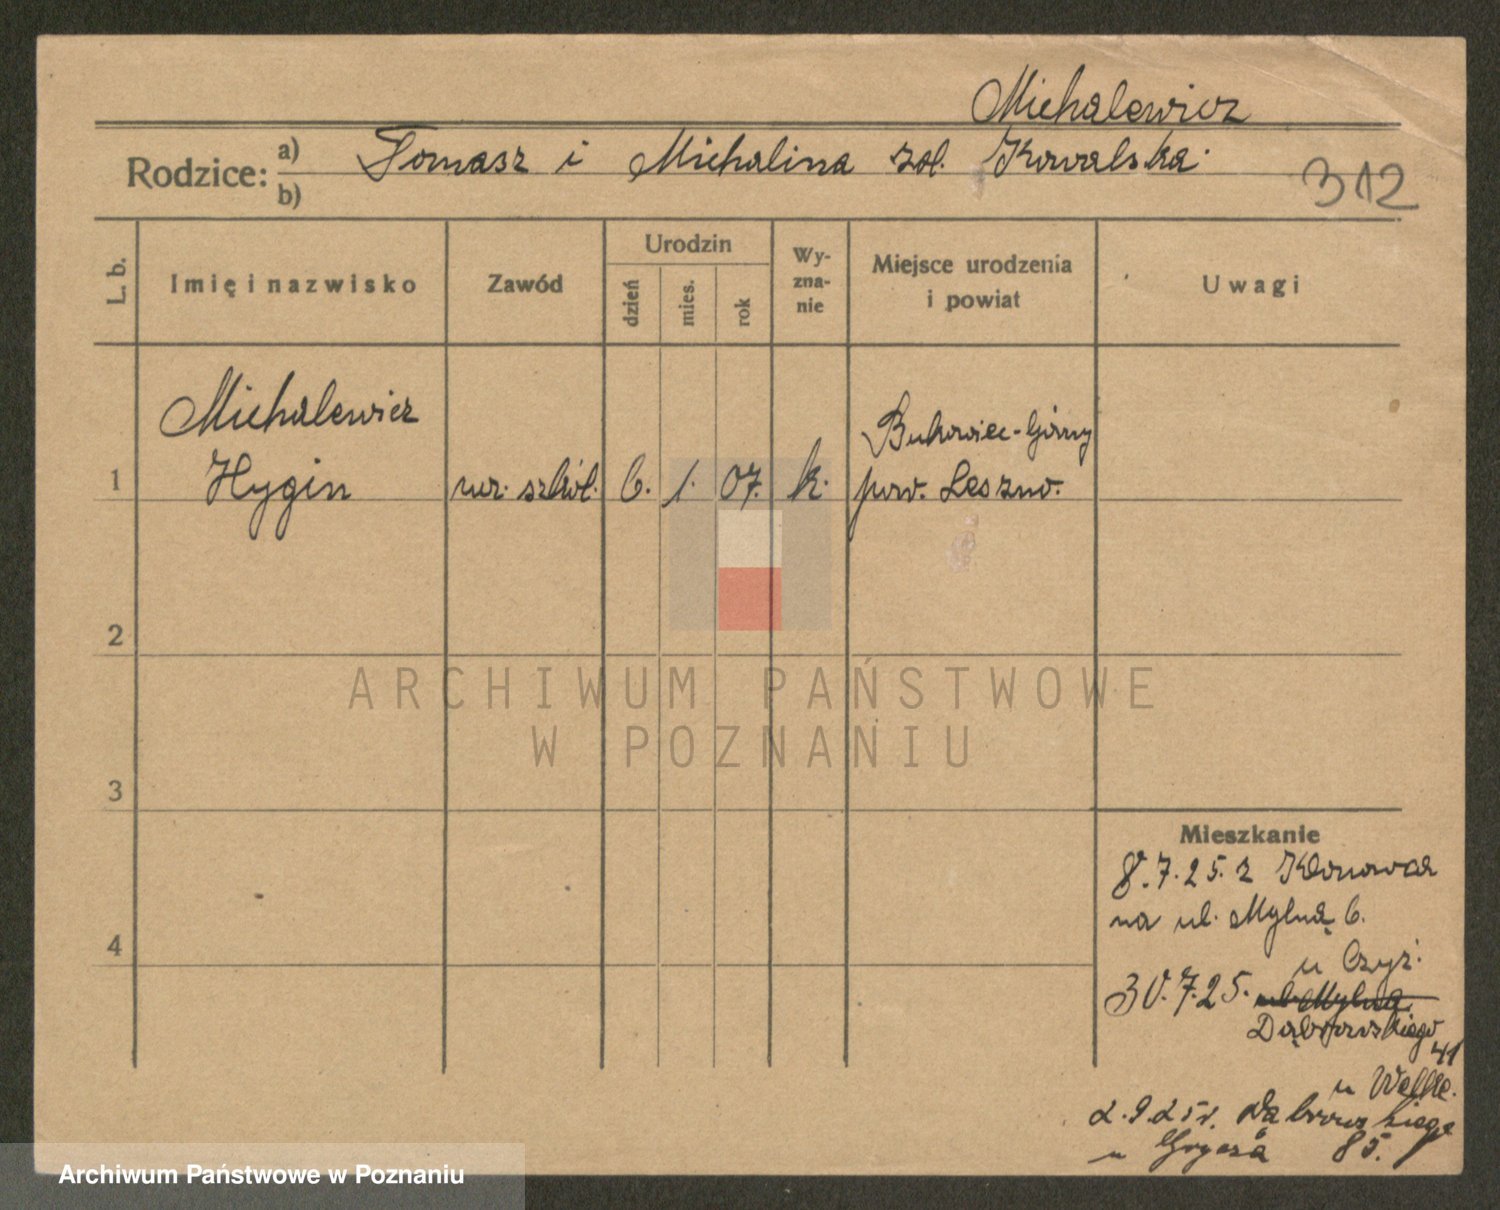 Michalewicz
Rodzice: a) Tomasz i Michalina zd. Kowalska.
b)
312
L. b.
Imię i nazwisko
Zawód
Urodzin
dzień
mies.
rok
Wy-
zna-
nie
Miejsce urodzenia
i powiat
Uwagi
Michalewicz
Hygin
1
ucz. szkół.
6.
1.
07.
k.
Bukowiec-Górny
pow. Leszno.
2
ARCHIWUM PAŃSTWOWE
W POZNANIU
3
4
Mieszkanie
8.7.25. z Klonowca
na ul. Mylną 6.
u Czyż.
30.7.25. ul. Mylna
Dąbrowskiego
41
u Welke.
2.9.25r. Dąbrowskiego
u 85.
Archiwum Państwowe w Poznaniu